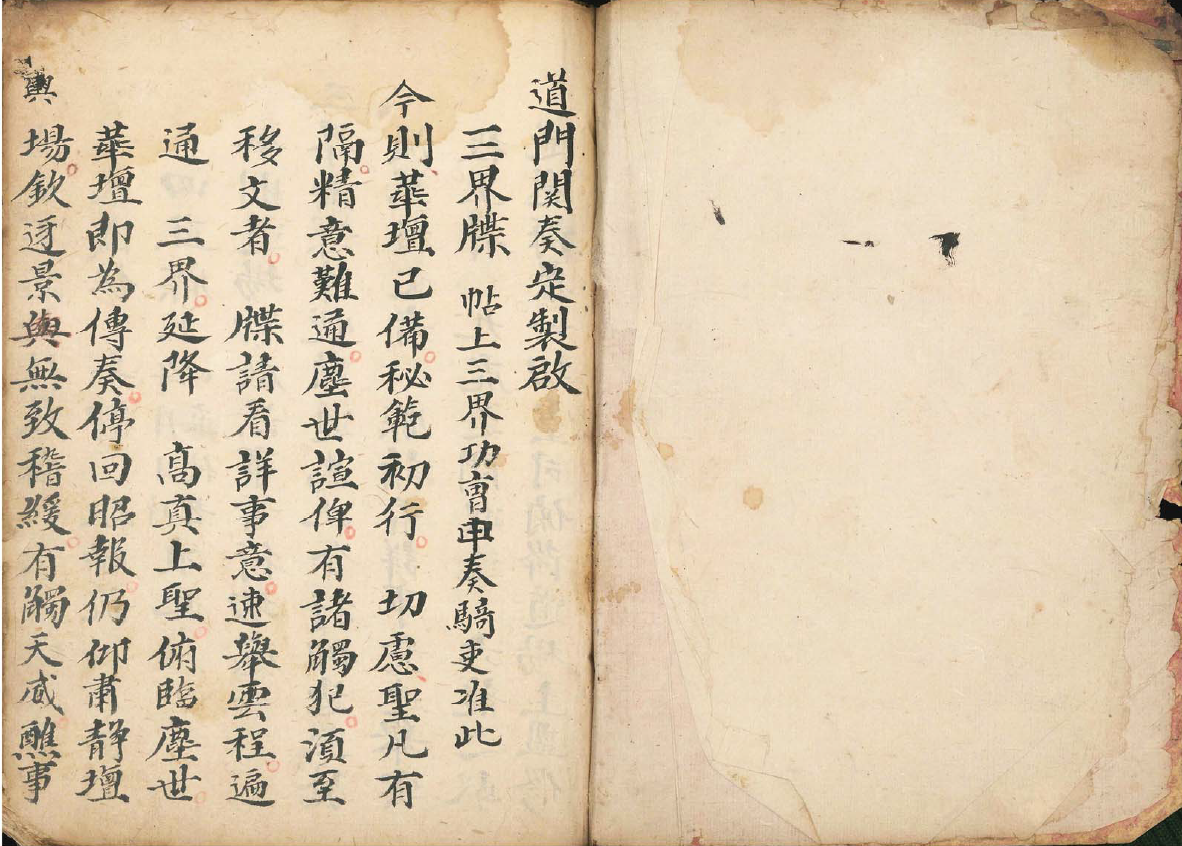 道門関奏定製啟
三界牒 帖上三界功曹申奏騎吏准此
今則華壇已備秘範初行 切慮聖凡有
隔精意難通塵世諠俾有諸觸犯湏至
移文者 牒請看詳事意速舉雲程遍
通 三界延降 高真上聖俯臨塵世
華壇即為傳奏停回昭報仍仰肅靜壇
場欽迓景輿無致稽緩有觸天威醮事
輿